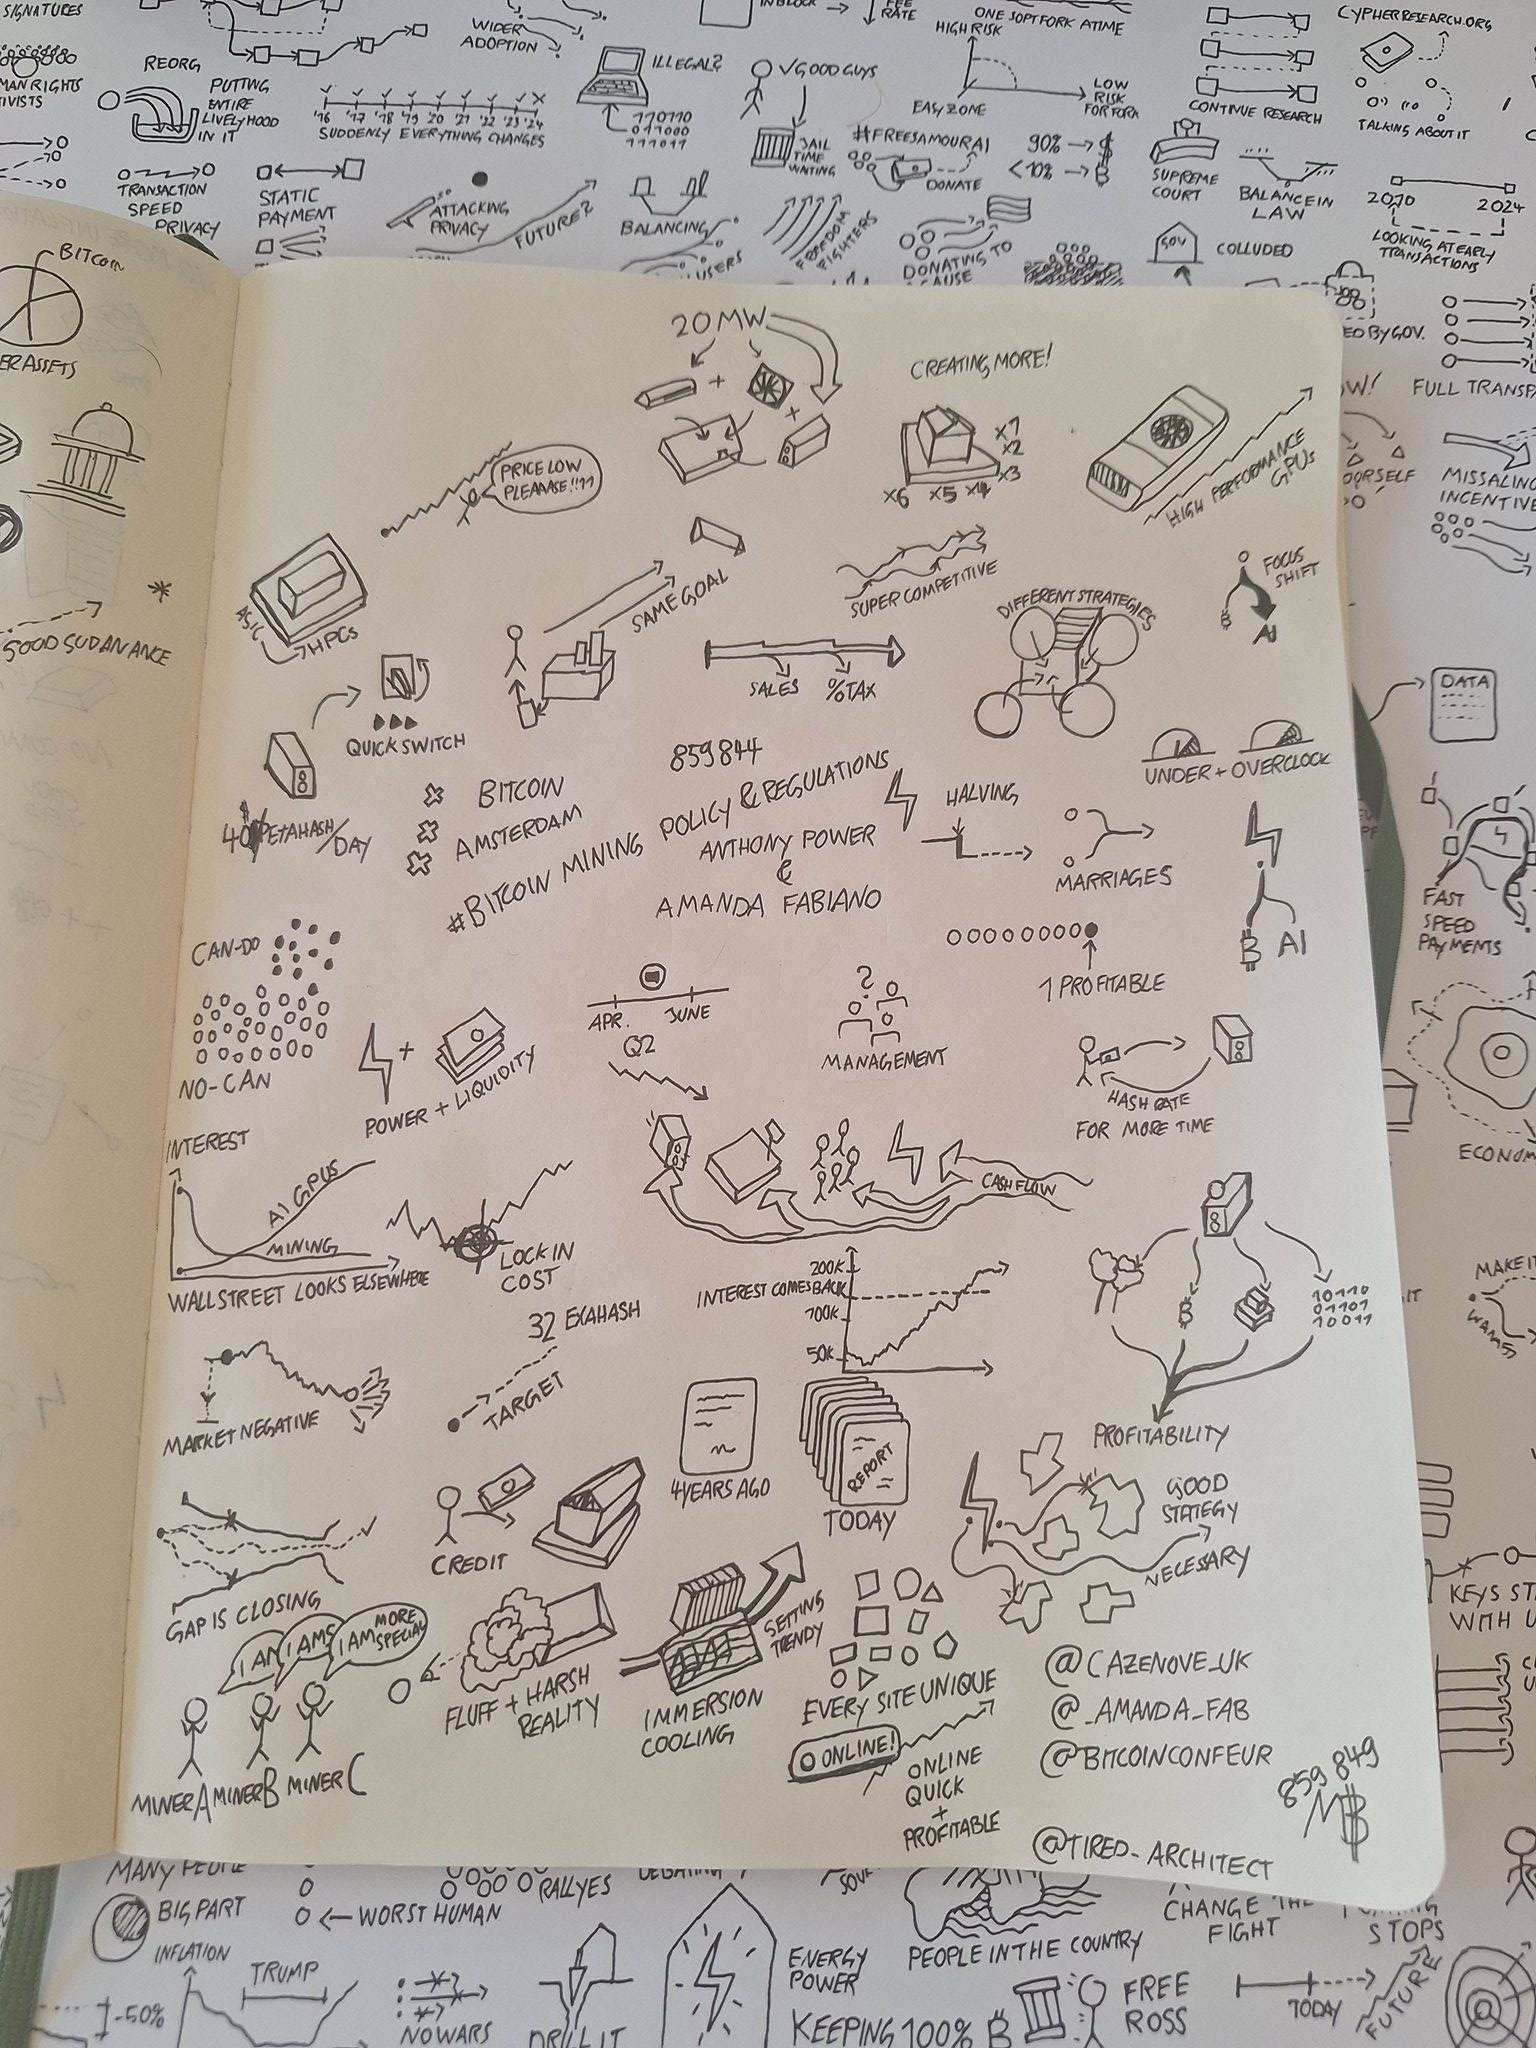 SIGNATURES
WIDER
ADOPTION
IN BLOCK
FEE
RATE
ONE SOFTFORK A TIME
HIGH RISK
CYPHERRESEARCH.ORG
REORG
PUTTING
ENTIRE
LIVELYHOOD
IN IT
'16 '17 '18 '19 '20 '21 '22 '23 '24
SUDDENLY EVERYTHING CHANGES
ILLEGAL?
110110
011000
111011
GOOD GUYS
JAIL
TIME
WAITING
EASY ZONE
LOW
RISK
FOR FORK
CONTINUE RESEARCH
TALKING ABOUT IT
#FREESAMOURAI
DONATE
90% → $
<10% → ₿
SUPREME
COURT
BALANCE IN
LAW
2010 2024
LOOKING AT EARLY
TRANSACTIONS
TRANSACTION
SPEED
PRIVACY
STATIC
PAYMENT
ATTACKING
PRIVACY
FUTURE?
BALANCING
USERS
FREEDOM
FIGHTERS
DONATING TO
GOV
COLLUDED
BY GOV.
FULL TRANSPA
BITCOIN
ER ASSETS
GOOD SUDANANCE
20 MW
CREATING MORE!
PRICE LOW
PLEAAASE!!11
x1
x2
x3
x6 x5 x4
HIGH PERFORMANCE
GPUs
ASIC
HPCs
SAME GOAL
SUPER COMPETITIVE
DIFFERENT STRATEGIES
FOCUS
SHIFT
₿ AI
QUICK SWITCH
SALES %TAX
UNDER + OVERCLOCK
PETAHASH/DAY
859844
BITCOIN
AMSTERDAM
#BITCOIN MINING POLICY & REGULATIONS
ANTHONY POWER
&
AMANDA FABIANO
HALVING
MARRIAGES
₿ AI
CAN-DO
NO-CAN
POWER + LIQUIDITY
APR. JUNE
Q2
?
MANAGEMENT
1 PROFITABLE
HASH RATE
FOR MORE TIME
INTEREST
AI GPUS
MINING
WALLSTREET LOOKS ELSEWHERE
LOCK IN
COST
CASHFLOW
INTEREST COMES BACK
200K
100K
50K
10110
01101
10011
₿
PROFITABILITY
MARKET NEGATIVE
32 EXAHASH
TARGET
4 YEARS AGO
REPORT
TODAY
GOOD
STATEGY
NECESSARY
GAP IS CLOSING
CREDIT
I AM
I AM S
I AM MORE
SPECIAL
MINER A MINER B MINER C
FLUFF + HARSH
REALITY
IMMERSION
COOLING
SETTING
TRENDY
EVERY SITE UNIQUE
ONLINE!
ONLINE
QUICK
+
PROFITABLE
@CAZENOVE_UK
@_AMANDA_FAB
@BITCOINCONFEUR
859 849
@TIRED_ARCHITECT
MISSALING
INCENTIVE
DATA
FAST
SPEED
PAYMENTS
ECONOM
MAKE IT
KEYS STA
WITH U
MANY PEOPLE
BIG PART
INFLATION
-50%
TRUMP
WORST HUMAN
RALLYES
NO WARS
DRILL IT
ENERGY
POWER
PEOPLE IN THE COUNTRY
KEEPING 100% ₿
FREE
ROSS
CHANGE THE
FIGHT
STOPS
TODAY
FUTURE